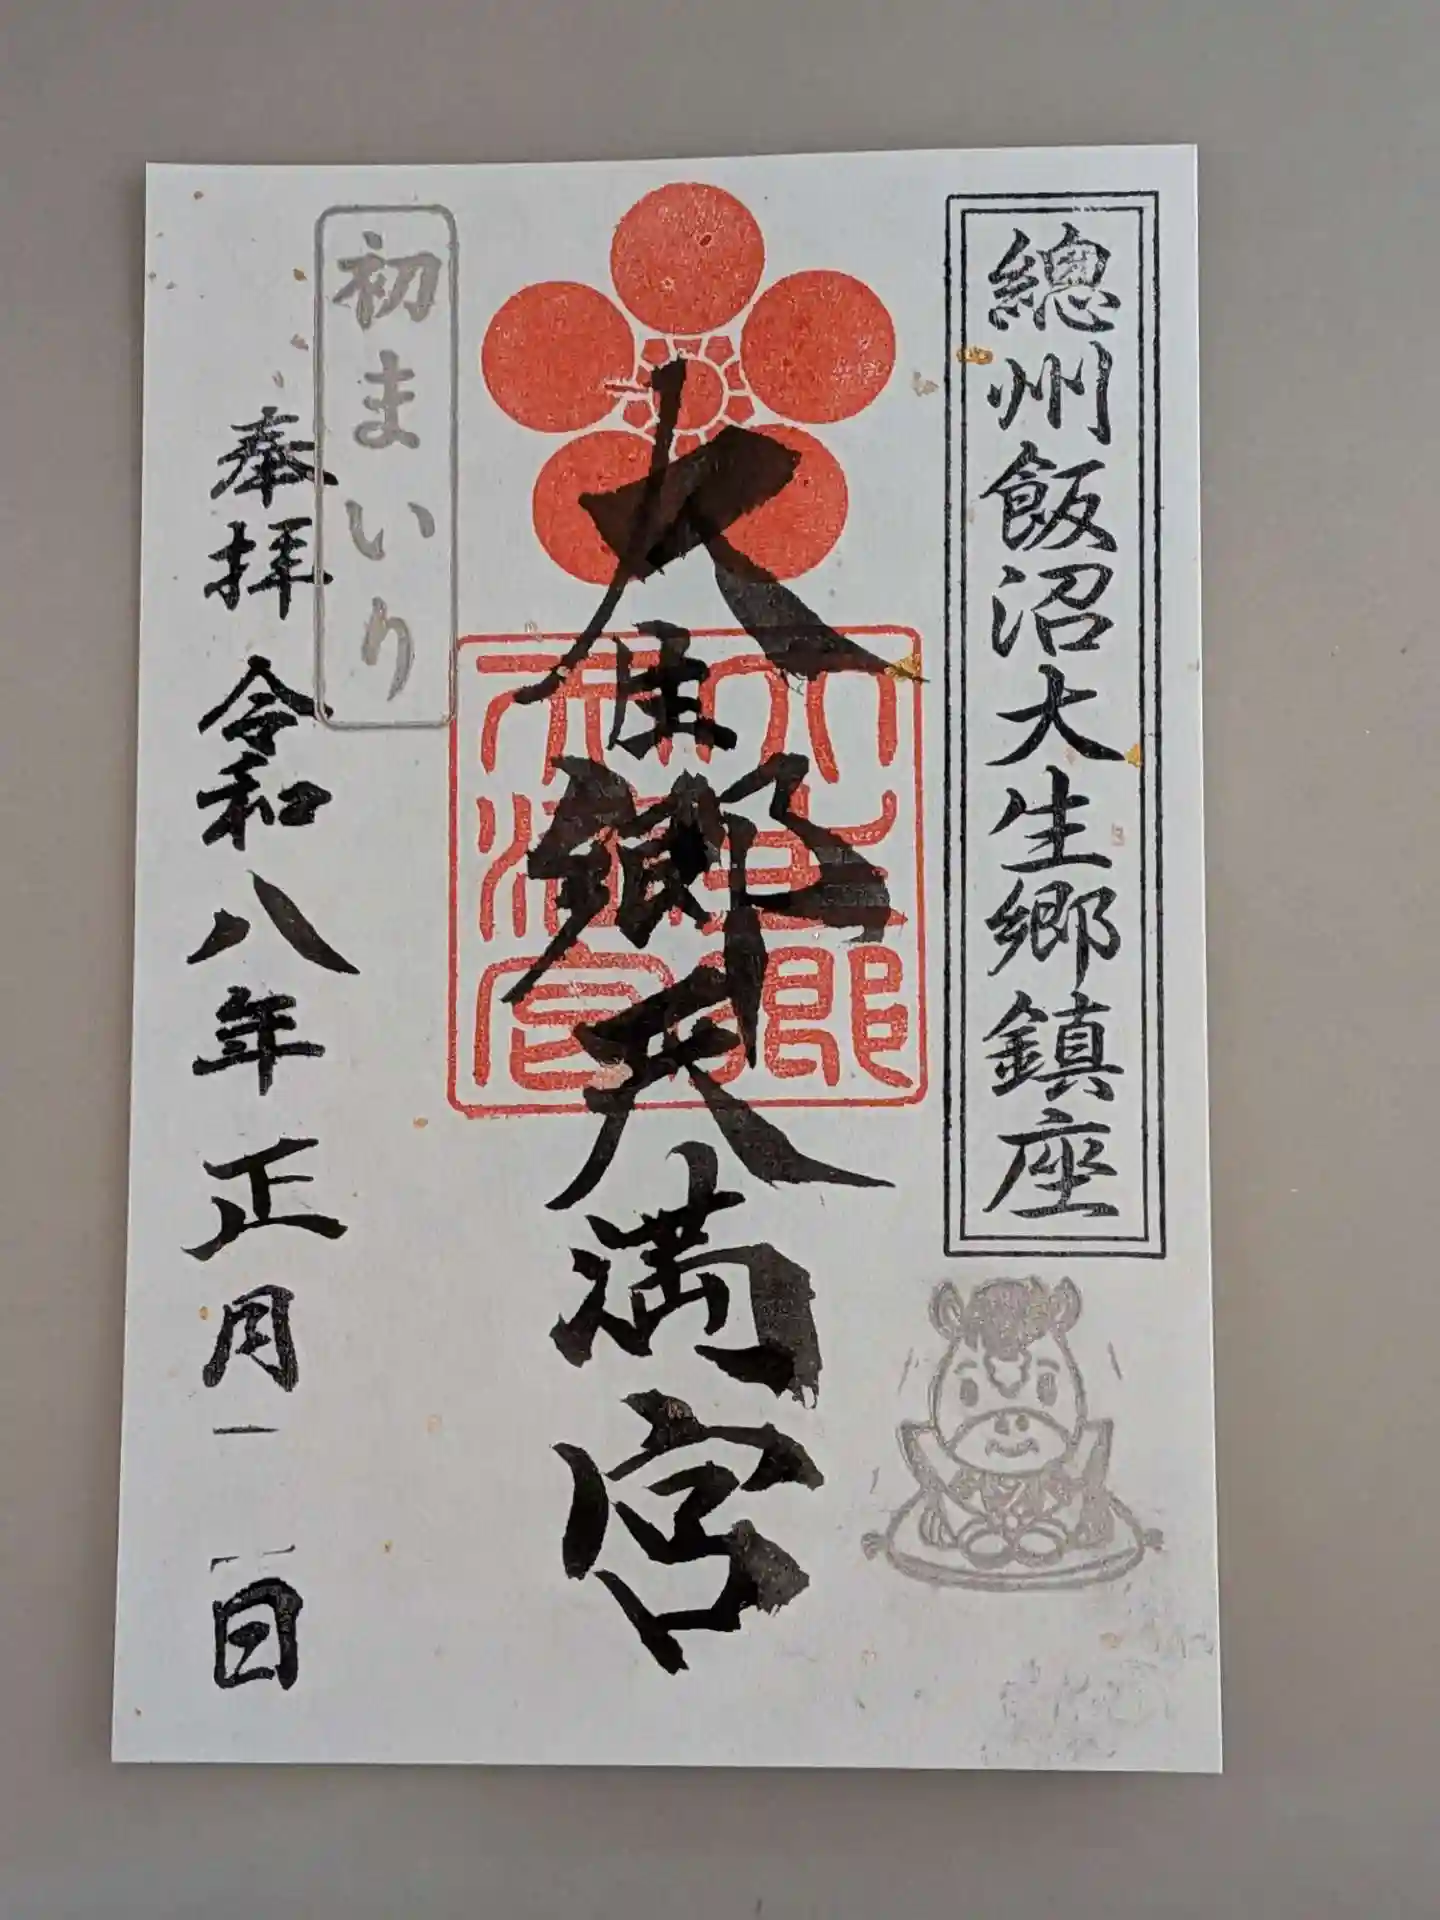 總州飯沼大生郷鎮座
大生郷天満宮
大生郷天満宮
初まいり
奉拝 令和八年正月一日